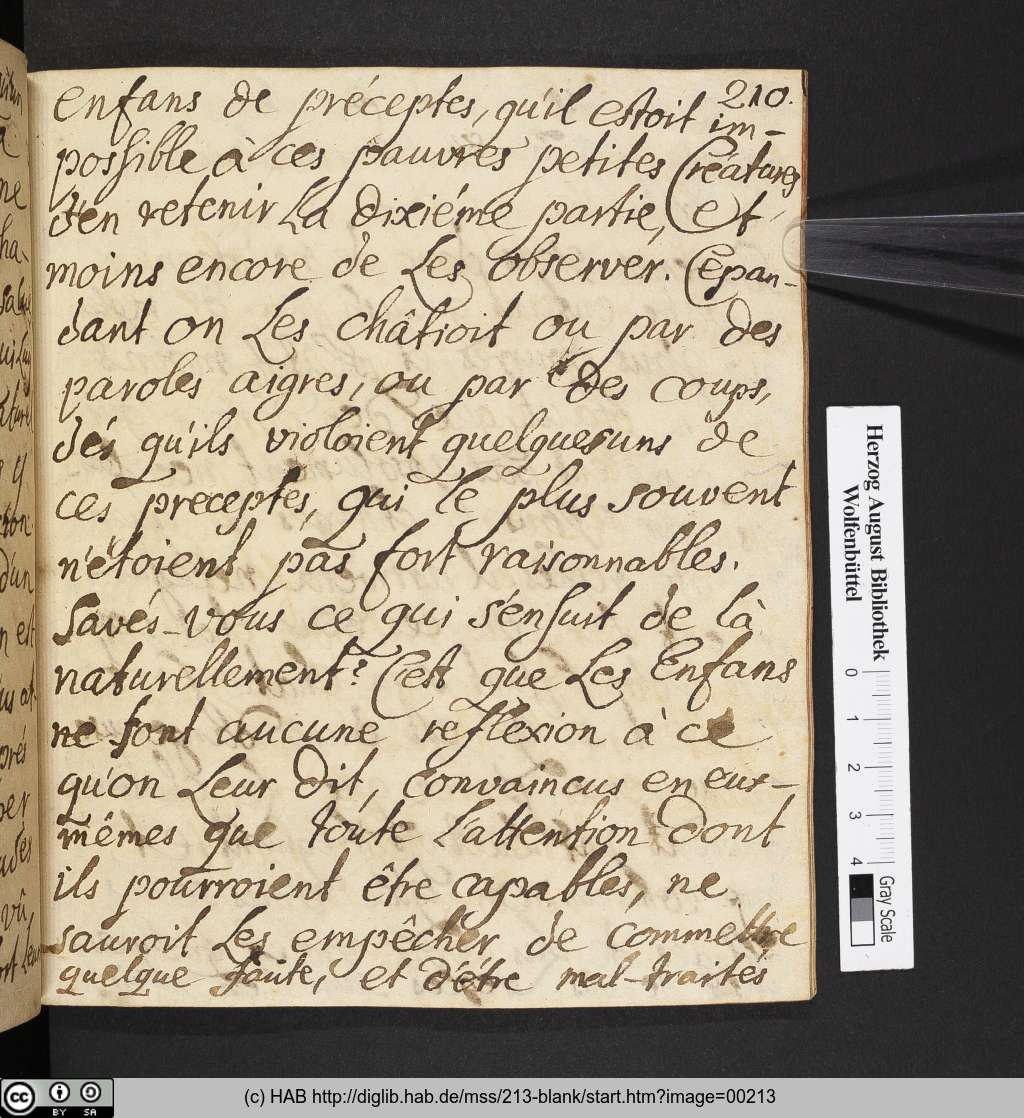 210.
enfans de préceptes, qu'il estoit im-
possible à ces pauvres petites Créatures
d'en retenir La dixiéme partie, et
moins encore de Les observer. Cepan-
dant on Les châtioit ou par des
paroles aigres, ou par des coups,
dés qu'ils violoient quelquesuns de
ces preceptes, qui le plus souvent
n'étoient pas fort raisonnables.
Savés-vous ce qui s'ensuit de là
naturellement? C'est que Les Enfans
ne font aucune reflexion à ce
qu'on Leur dit, convaincus en eux-
mêmes que toute L'attention dont
ils pourroient être capables, ne
sauroit Les empêcher de commettre
quelque faute, et d'étre mal-traités
Herzog August Bibliothek
Wolfenbüttel
0 1 2 3 4
Gray Scale
cc BY SA
(c) HAB http://diglib.hab.de/mss/213-blank/start.htm?image=00213